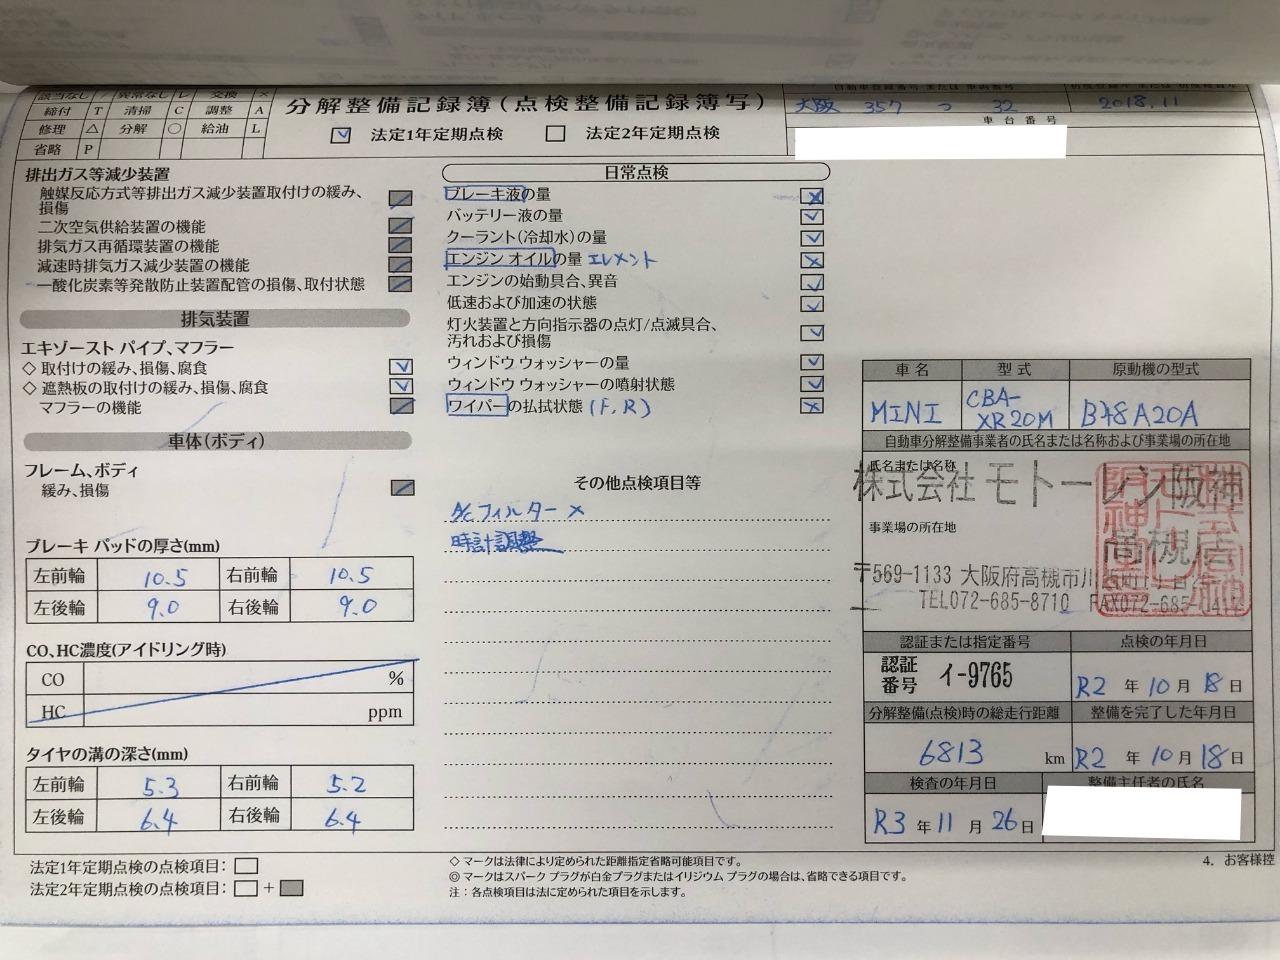 該当なし / 異常なし レ 交換 ×
締付 T 清掃 C 調整 A
修理 △ 分解 ○ 給油 L
省略 P
分解整備記録簿(点検整備記録簿写)
法定1年定期点検 法定2年定期点検
大阪 357 つ 32
2018.11
車台番号
排出ガス等減少装置
触媒反応方式等排出ガス減少装置取付けの緩み、
損傷
二次空気供給装置の機能
排気ガス再循環装置の機能
減速時排気ガス減少装置の機能
一酸化炭素等発散防止装置配管の損傷、取付状態
排気装置
エキゾースト パイプ、マフラー
◇ 取付けの緩み、損傷、腐食
◇ 遮熱板の取付けの緩み、損傷、腐食
マフラーの機能
車体(ボディ)
フレーム、ボディ
緩み、損傷
ブレーキ パッドの厚さ(mm)
左前輪 10.5 右前輪 10.5
左後輪 9.0 右後輪 9.0
CO、HC濃度(アイドリング時)
CO %
HC ppm
タイヤの溝の深さ(mm)
左前輪 5.3 右前輪 5.2
左後輪 6.4 右後輪 6.4
法定1年定期点検の点検項目:
法定2年定期点検の点検項目: +
日常点検
ブレーキ液の量
バッテリー液の量
クーラント(冷却水)の量
エンジン オイルの量 エレメント
エンジンの始動具合、異音
低速および加速の状態
灯火装置と方向指示器の点灯/点滅具合、
汚れおよび損傷
ウィンドウ ウォッシャーの量
ウィンドウ ウォッシャーの噴射状態
ワイパーの払拭状態 (F, R)
その他点検項目等
A/Cフィルター ×
時計調整
◇ マークは法律により定められた距離指定省略可能項目です。
◎ マークはスパーク プラグが白金プラグまたはイリジウム プラグの場合は、省略できる項目です。
注:各点検項目は法に定められた項目を示します。
車名 型式 原動機の型式
MINI CBA-XR20M B48A20A
自動車分解整備事業者の氏名または名称および事業場の所在地
氏名または名称
株式会社 モトーレン阪神
事業場の所在地
高槻店
〒569-1133 大阪府高槻市川西町1丁目
TEL072-685-8710 FAX072-685-0417
認証または指定番号 点検の年月日
認証番号 イ-9765
R2 年 10 月 18 日
分解整備(点検)時の総走行距離 整備を完了した年月日
6813 km
R2 年 10 月 18 日
検査の年月日 整備主任者の氏名
R3 年 11 月 26 日
4. お客様控